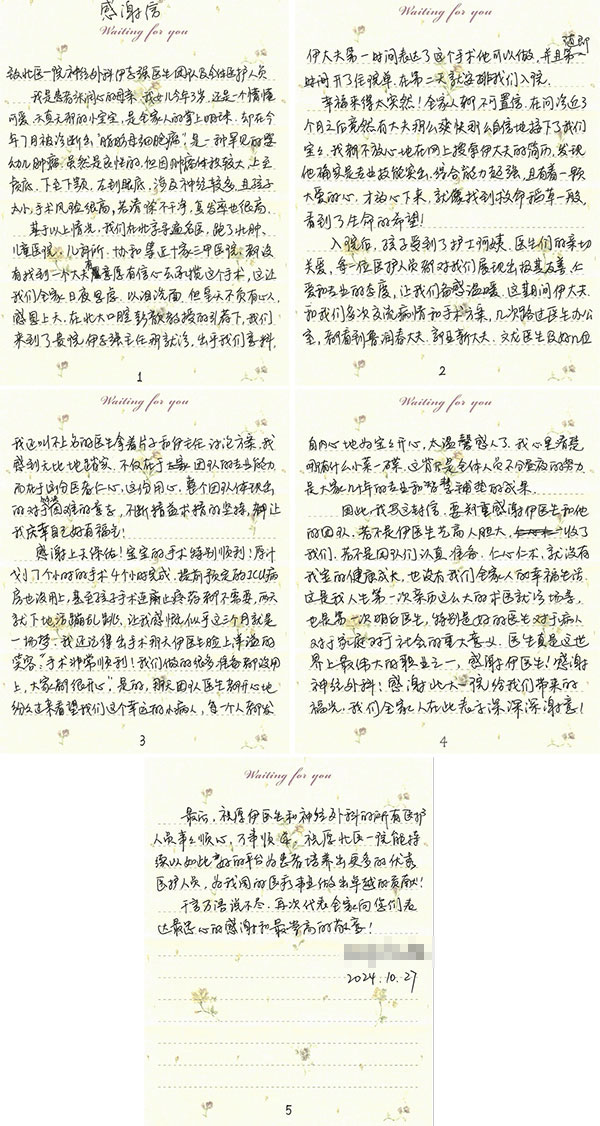 感谢信
Waiting for you
致北医一院神经外科伊志强医生团队及全体医护人员
我是患者张润心的母亲，我女儿今年3岁，还是一个懵懂
可爱、天真无邪的小宝宝，是全家人的掌上明珠。却在今
年7月被诊断为"脂肪母细胞瘤"，是一种罕见的婴
幼儿肿瘤。虽然是良性的，但因肿瘤体积较大，上至
颅底、下至下颚，左到眼底，涉及神经较多，且孩子
太小，手术风险很高，若清除不干净，复发率也很高。
基于以上情况，我们在北京寻遍名医，跑了北肿、
儿童医院、儿研所、协和等近十家三甲医院，都没
有找到一个大夫有意愿有信心去承揽这个手术，这让
我们全家日夜思虑、以泪洗面。但皇天不负有心人，
感恩上天，在北大口腔彭歆教授的引荐下，我们
来到了贵院伊志强主任那就诊，出乎我们意料，
1
Waiting for you
随即
伊大夫第一时间表达了这个手术他可以做，并且第一
时间开了住院单，在第二天就安排我们入院。
幸福来得太突然！全家人都不可置信，在问诊近3
个月之后竟然有大夫那么爽快那么自信地接下了我们
宝宝，我都不放心地在网上搜索伊大夫的简历，发现
他确实是专业技能突出、综合能力超强，且有着一颗
大爱的心，才放心下来，就像找到救命稻草一般，
看到了生命的希望！
入院后，孩子受到了护士阿姨、医生们的亲切
关爱，每一位医护人员都对我们展现出极其友善、仁
爱和专业的态度，让我们倍感温暖。这期间伊大夫
和我们多次交流病情和手术方案，几次路过医生办公
室，都看到鲁润春大夫、郭且新大夫、文龙医生及好几位
2
Waiting for you
我还叫不上名的医生拿着片子和伊主任讨论方案，我
感到无比地踏实，不仅在于专家团队的专业能力
而在于这份医者仁心，这份用心。整个团队体现出
的对待患难的善意，不断精益求精的坚持，都让
我庆幸自己好有福气！
感谢上天保佑！宝宝的手术特别顺利！原计
划7个小时的手术4个小时完成，提前预定的ICU病
房也没用上，甚至孩子手术连镇痛止疼药都不需要，两天
就下地活蹦乱跳，让我感慨似乎这三个月就是
一场梦。我还记得出手术那天伊医生脸上洋溢的
笑容："手术非常顺利！我们做的很多准备都没用
上，大家都很开心"是的，那天团队医生都开心地
纷纷过来看望我们这个幸运的小病人，每一个人都发
3
Waiting for you
自内心地为宝宝开心，太温馨感人了。我心里清楚
哪有什么小菜一碟，这背后是全体人员不分昼夜的努力
是大家几十年的专业和智慧铺垫的成果。
因此，我写这封信，要郑重感谢伊医生和他
的团队，若不是伊医生艺高人胆大，收了
我们，若不是团队们认真准备、仁心仁术，就没有
我宝的健康成长，也没有我们全家人的幸福生活
这是我人生第一次亲历这么大的求医就诊场景，
也是第一次明白医生，特别是好的医生对于病人
对于家庭对于社会的重大意义。医生真是这世
界上最伟大的职业之一，感谢伊医生！感谢
神经外科！感谢北大一院给我们带来的
福光。我们全家人在此表示深深深谢意！
4
Waiting for you
最后，祝愿伊医生和神经外科的所有医护
人员事事顺心，万事顺遂，祝愿北医一院能持
续以如此好的平台为患者培养出更多的优秀
医护人员，为我国的医疗事业做出卓越的贡献！
千言万语说不尽，再次代表全家向您们表
达最忠心的感谢和最崇高的敬意！
2024.10.27
5